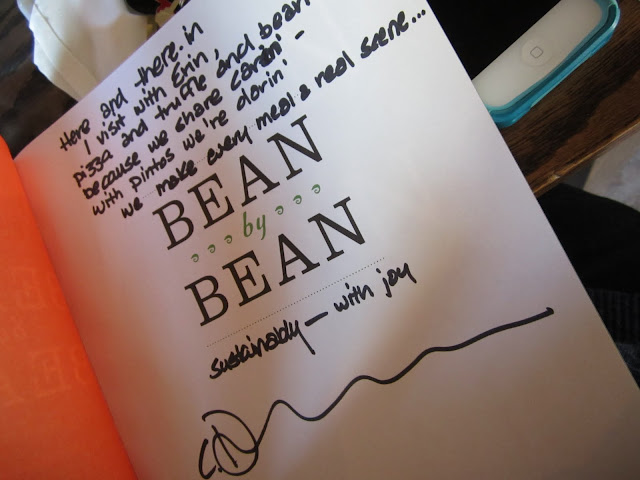 Here and there in
I visit with Erin,
pizza and truffle and bean
because we share carin' -
with pintos we're darin'
we make every meal a real scene...
BEAN
by
BEAN
sustainably — with joy
CD